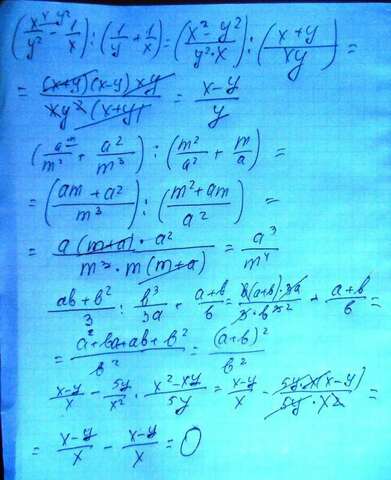 (x^{\x}/y² - ^{y²}1/x) : (1/y + 1/x) = (x² - y²/y²·x) : (x+y/xy) =
= (x+y)(x-y) xy/xy²(x+y) = x-y/y
(a/m² + a²/m³) : (m²/a² + m/a) =
= (am+a²/m³) : (m²+am/a²) =
= a(m+a)·a²/m³·m(m+a) = a³/m⁴
ab+b²/3 : b³/3a + a+b/b = b(a+b)·3a/3·b³² + a+b/b =
= a²+ba+ab+b²/b² = (a+b)²/b²
x-y/x - 5y/x² · x²-xy/5y = x-y/x - 5y·x(x-y)/5y·x² =
= x-y/x - x-y/x = 0